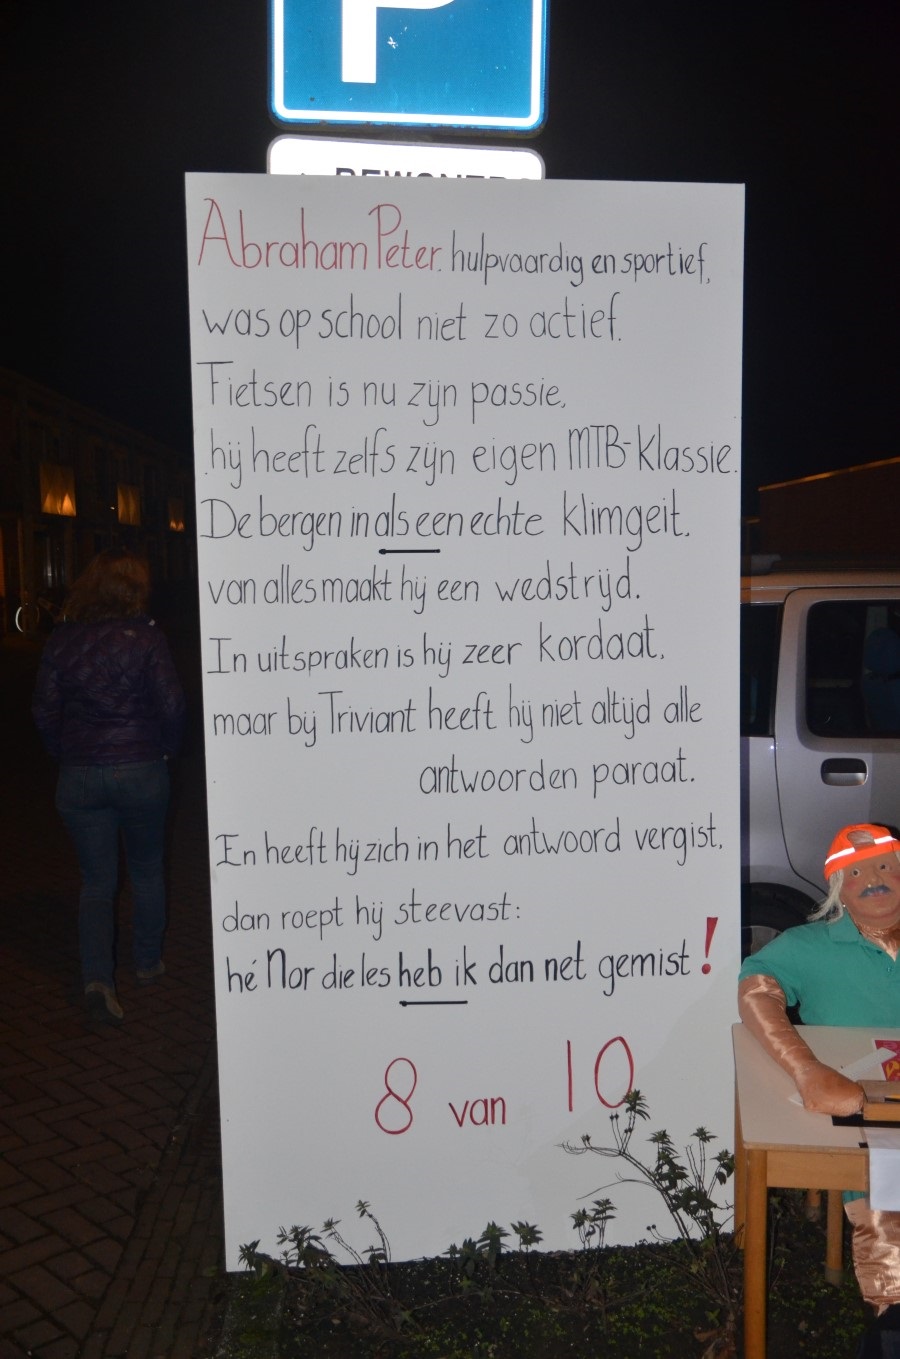 P
BEWONERS
Abraham Peter. hulpvaardig en sportief,
was op school niet zo actief.
Fietsen is nu zijn passie,
hij heeft zelfs zijn eigen MTB-klassie.
De bergen in als een echte klimgeit,
van alles maakt hij een wedstrijd.
In uitspraken is hij zeer kordaat,
maar bij Triviant heeft hij niet altijd alle
antwoorden paraat.
En heeft hij zich in het antwoord vergist,
dan roept hij steevast:
hé Nor die les heb ik dan net gemist!
8 van 10